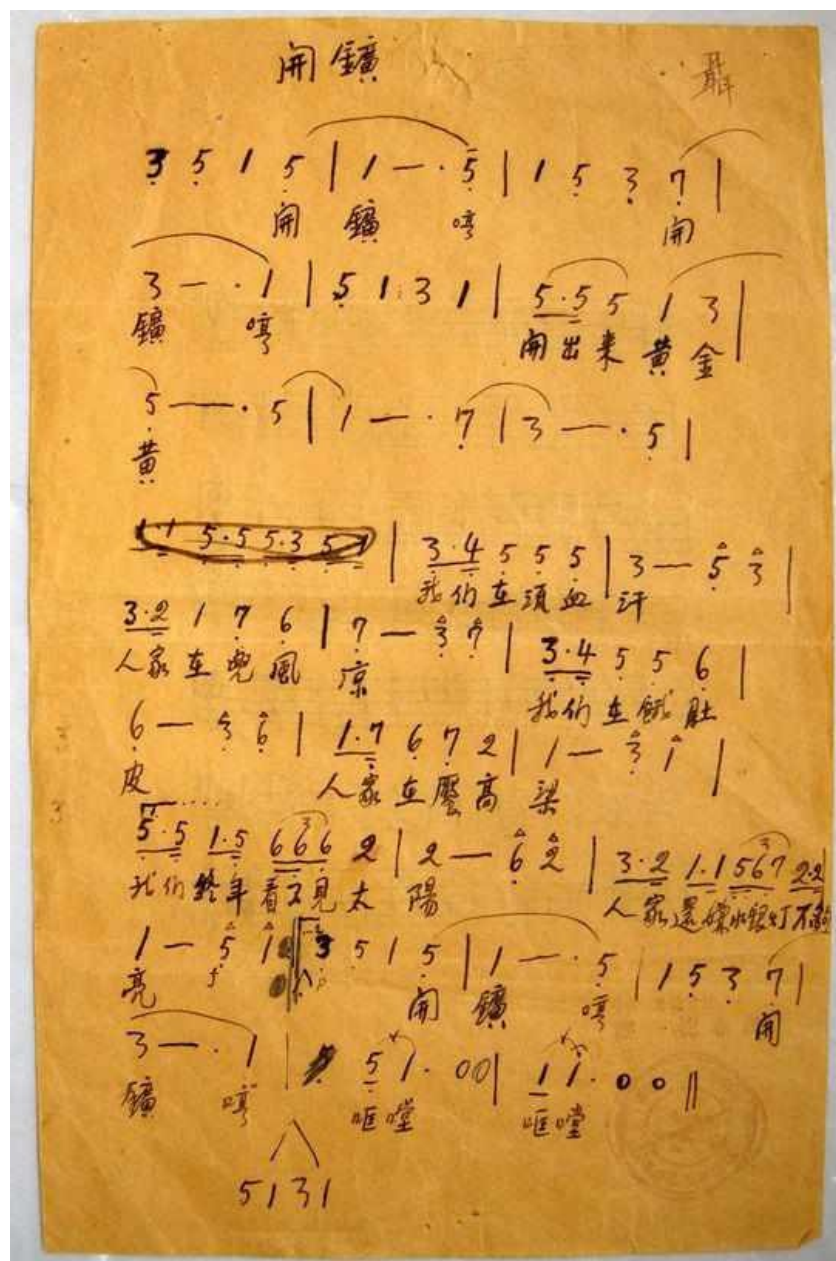 開鑛 聶
3 5 1 5 | 1 — · 5 | 1 5 3 7 |
開 鑛 哼 開
3 — · 1 | 5 1 3 1 | 5·5 5 1 3 |
鑛 哼 開出来 黄 金
5 — · 5 | 1 — · 7 | 3 — · 5 |
黄
1·1 5·5 5·3 5 1 | 3·4 5 5 5 | 3 — 5 3 |
我们在須血 汗
3·2 1 7 6 | 7 — 3 7 | 3·4 5 5 6 |
人家在兜風 凉 我们在餓肚
6 — 3 6 | 1·7 6 7 2 | 1 — 3 1 |
皮 人家在壓高 梁
5·5 1·5 666 2 | 2 — 6 2 | 3·2 1·1 567 2·2
我们終年看不見太 陽 人家還嫌水銀灯不夠
1 — 5 1 3 5 1 5 | 1 — · 5 | 1 5 3 7 |
亮 f p 開 鑛 哼 開
3 — · 1 | 5 1· 00 | 1 1· 00 ||
鑛 哼 哐嘡 哐嘡
5131